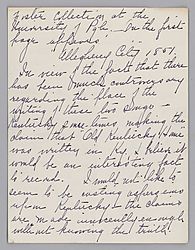 Foster Collection at the
University of Pgh. - On the first
page appears
Allegheny City, 1851.
In view of the fact that there
has been much controversy
regarding the place of the
writing of these two songs -
Kentucky sometimes making the
claim that Old Kentucky Home
was written in Ky, I believe it
would be an interesting fact
to record. I would not like to
seem to be casting aspersions
upon Kentucky & the claims
are made innocently enough
without knowing the truth.